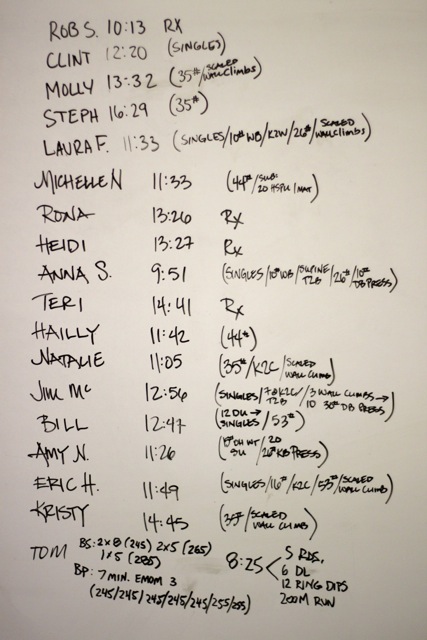 ROB S. 10:13 RX
CLINT 12:20 (SINGLES)
MOLLY 13:32 (35#/SCALED WALL CLIMBS)
STEPH 16:29 (35#)
LAURA F. 11:33 (SINGLES/10# WB/K2W/26#/SCALED WALL CLIMBS)
MICHELLE N 11:33 (44#/SUB: 20 HSPU/MAT)
RONA 13:26 RX
HEIDI 13:27 RX
ANNA S. 9:51 (SINGLES/10# WB/SUPINE T2B/26#/10# DB PRESS)
TERI 14:41 RX
HAILLY 11:42 (44#)
NATALIE 11:05 (35#/K2C/SCALED WALL CLIMB)
JIM MC 12:56 (SINGLES/78 K2C/T2B/3 WALL CLIMBS → 10 30# DB PRESS)
BILL 12:47 (12 DU → SINGLES/53#)
AMY N. 11:26 (OH WT SU/20 26# KB PRESS)
ERIC H. 11:49 (SINGLES/16#/K2C/53#/SCALED WALL CLIMB)
KRISTY 14:45 (35#/SCALED WALL CLIMB)
TOM BS: 2x8 (245) 2x5 (265)
1x5 (285)
BP: 7 MIN. EMOM 3
(245/245/245/245/245/255/255)
8:25 < 5 RDS.
6 DL
12 RING DIPS
200M RUN